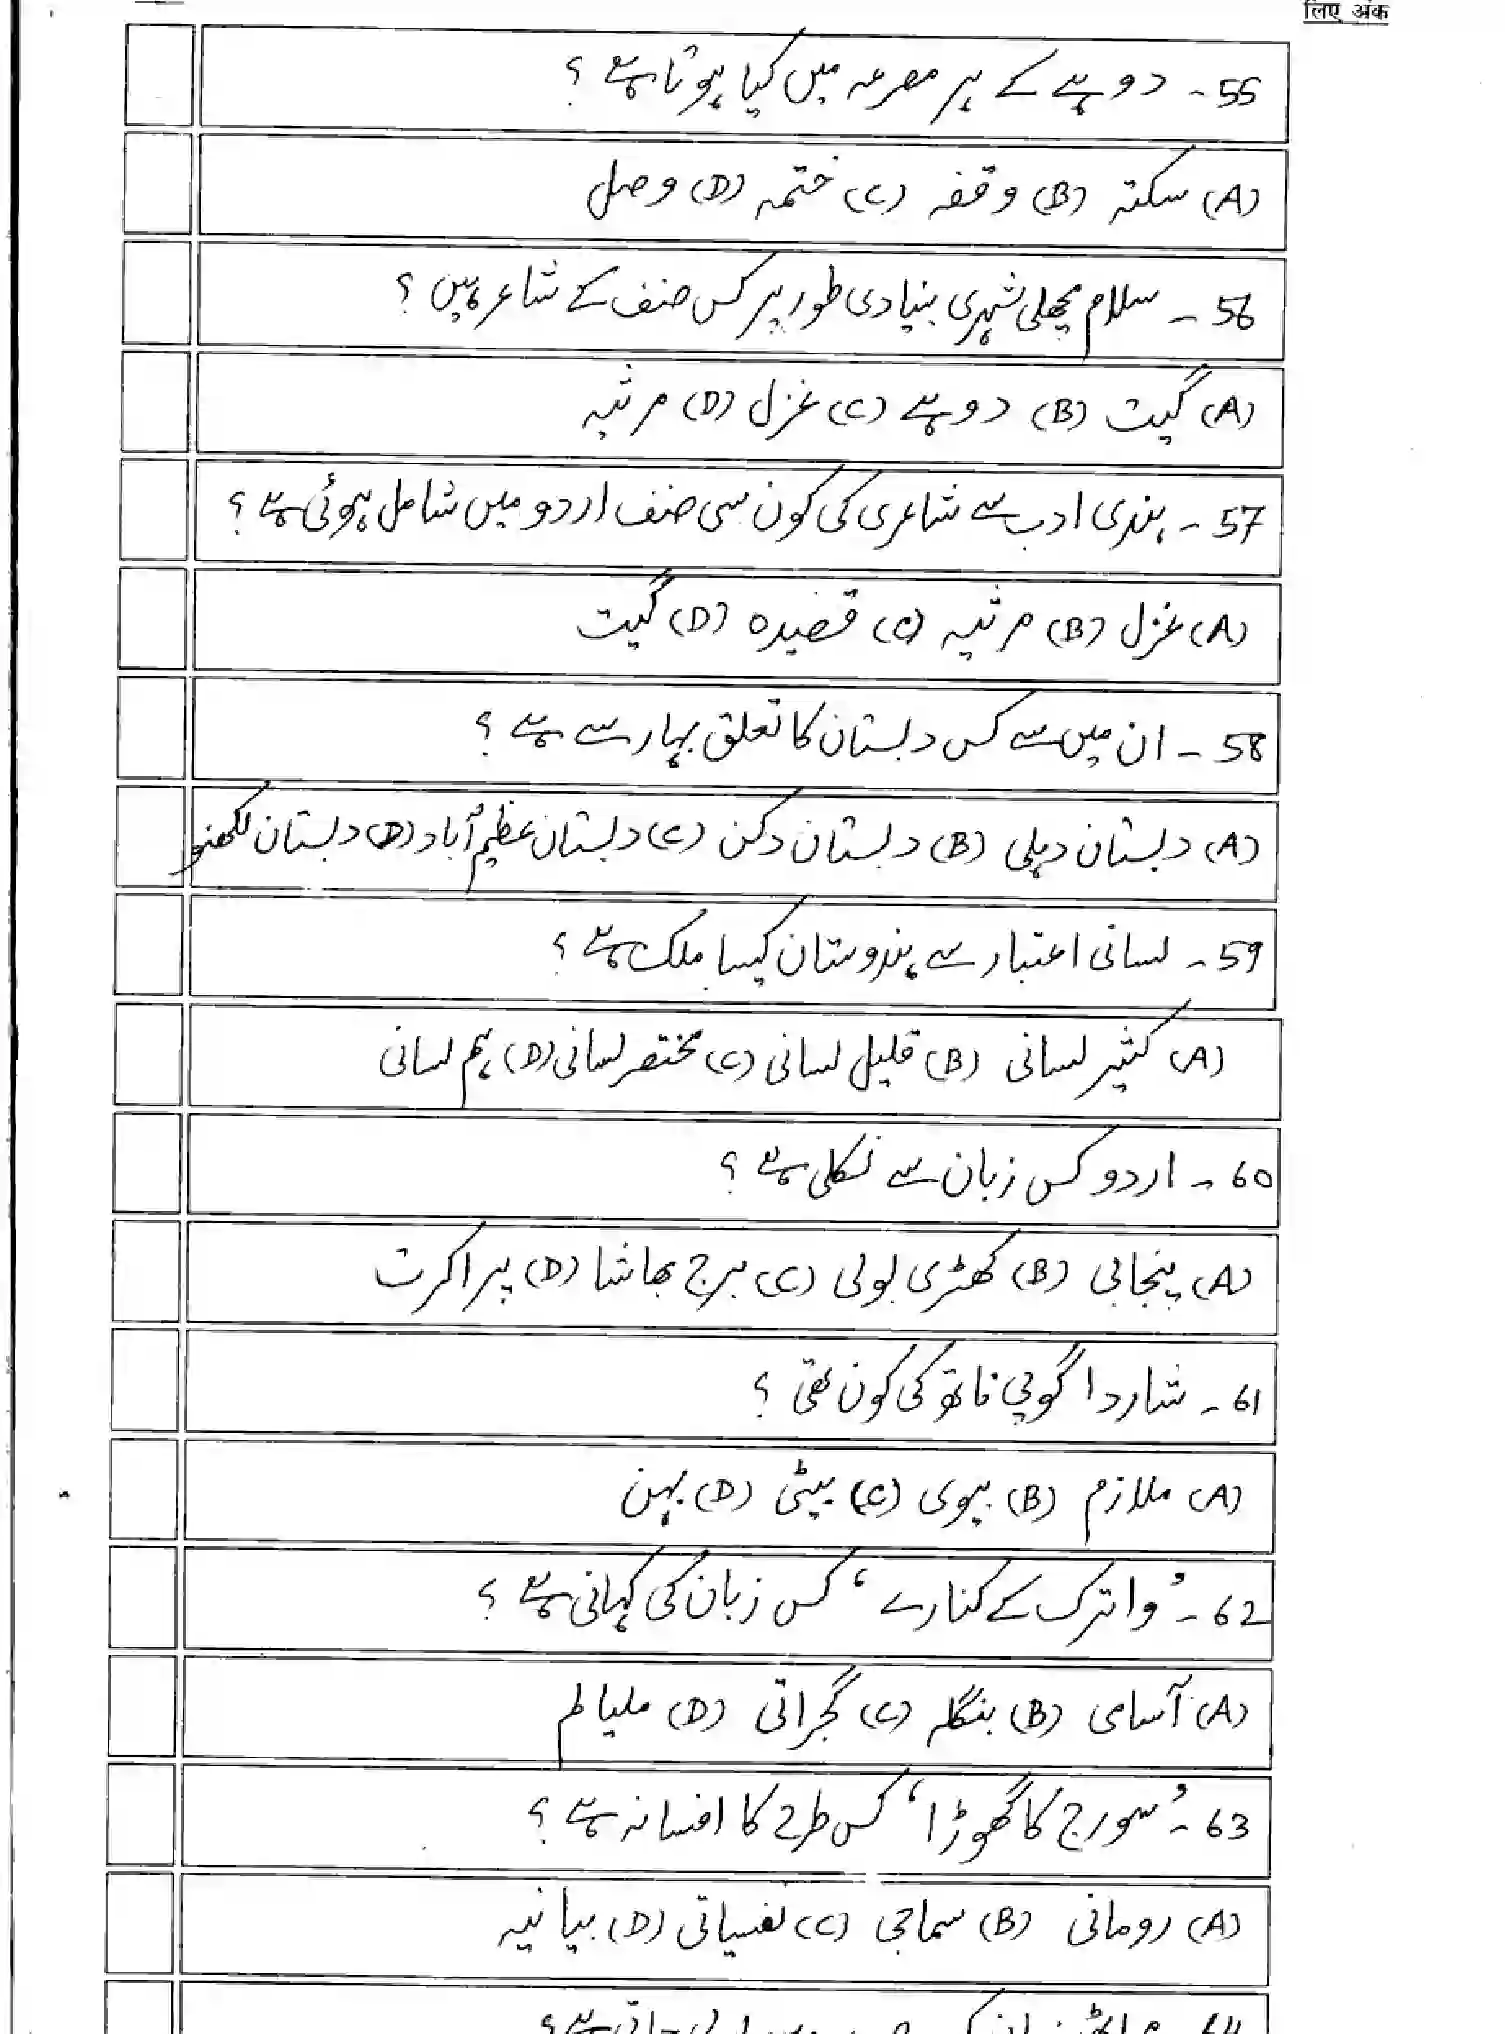 लिए अंक
55۔ دوہے کے ہر مصرعہ میں کیا ہوتا ہے؟
(A) سکتہ (B) وقفہ (C) ختمہ (D) وصل
56۔ سلام مچھلی شہری بنیادی طور پر کس صنف کے شاعر ہیں؟
(A) گیت (B) دوہے (C) غزل (D) مرثیہ
57۔ ہندی ادب سے شاعری کی کون سی صنف اردو میں شامل ہوئی ہے؟
(A) غزل (B) مرثیہ (C) قصیدہ (D) گیت
58۔ ان میں سے کس دبستان کا تعلق بہار سے ہے؟
(A) دبستان دہلی (B) دبستان دکن (C) دبستان عظیم آباد (D) دبستان لکھنو
59۔ لسانی اعتبار سے ہندوستان کیسا ملک ہے؟
(A) کثیر لسانی (B) قلیل لسانی (C) مختصر لسانی (D) ہم لسانی
60۔ اردو کس زبان سے نکلی ہے؟
(A) پنجابی (B) کھڑی بولی (C) برج بھاشا (D) پراکرت
61۔ شاردا گوپی ناتھ کی کون تھی؟
(A) ملازم (B) بیوی (C) بیٹی (D) بہن
62۔ ’واترک کے کنارے‘ کس زبان کی کہانی ہے؟
(A) آسامی (B) بنگلہ (C) گجراتی (D) ملیالم
63۔ ’سورج کا گھوڑا‘ کس طرح کا افسانہ ہے؟
(A) رومانی (B) سماجی (C) نفسیاتی (D) بیانیہ